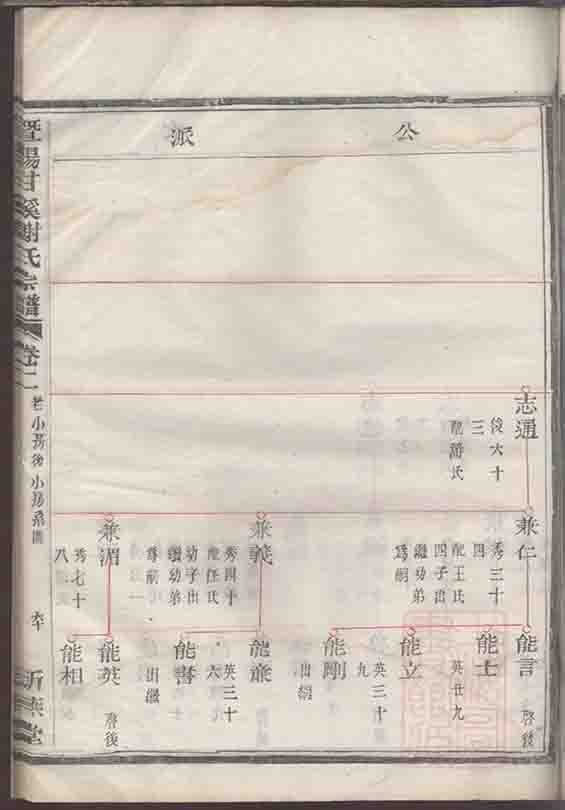 公派
志通
俊六十
三
配謝氏
兼仁
秀三十
四
配王氏
四子出
繼功弟
爲嗣
兼義
秀四十
配任氏
幼子出
繼功弟
爲嗣
兼湄
秀七十
八
能言
啓後
能士
英廿九
能立
英三十
九
能剛
出繼
能兼
英三十
六
能書
出繼
能英
啓後
能相
暨陽甘溪謝氏宗譜
卷二
老小房後小房系圖